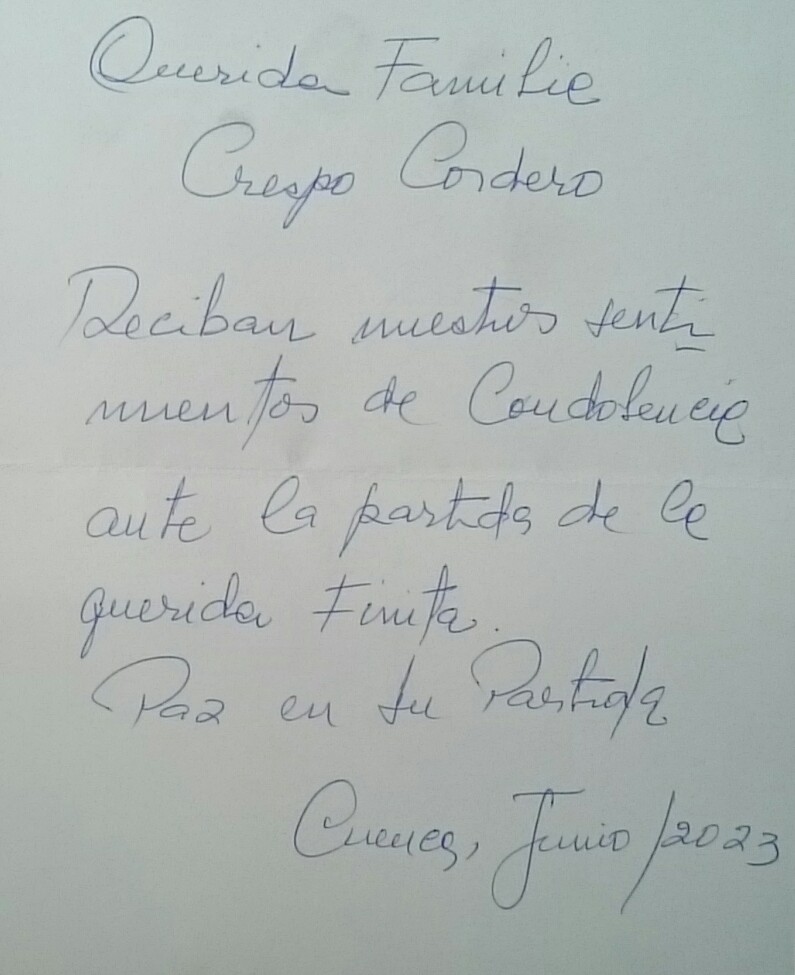 Querida Familia
Crespo Cordero
Reciban nuestros senti
mientos de Condolencia
ante la partida de la
querida Finita.
Paz en su Partida
Cuenca, Junio/2023